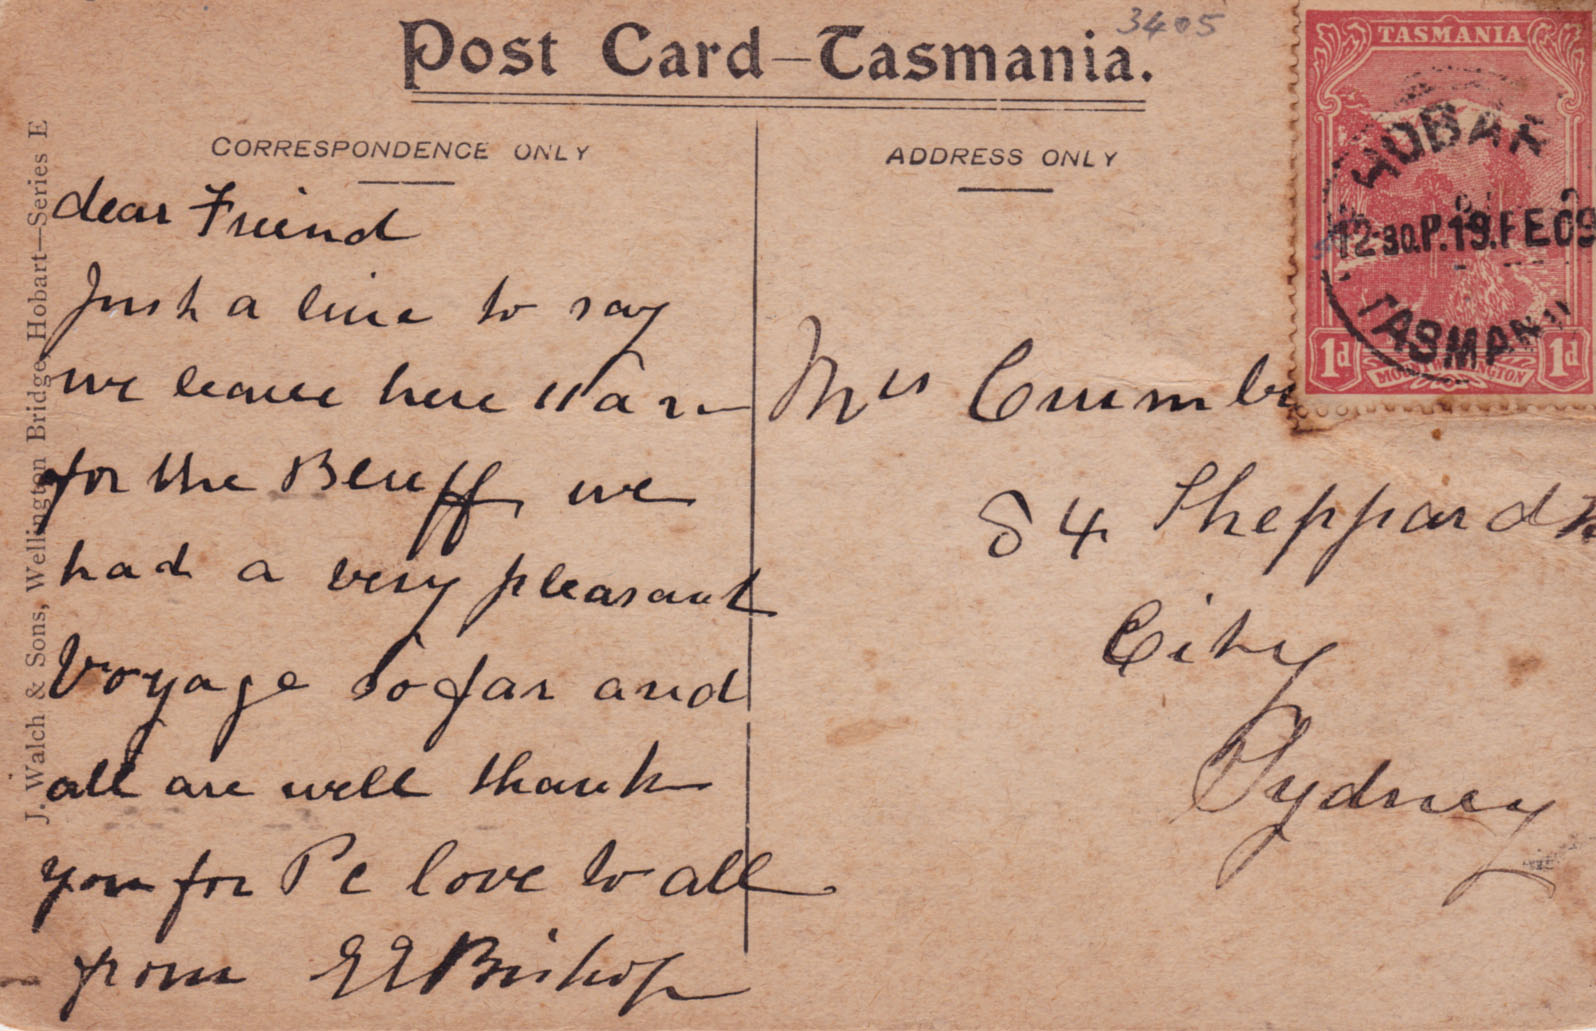 3405
Post Card—Tasmania.
CORRESPONDENCE ONLY
dear Friend
Just a line to say
we leave here 11 a m
for the Bluff, we
had a very pleasant
Voyage so far and
all are well thank
you for Pc love to all
from E E Bishop
J. Walch & Sons, Wellington Bridge, Hobart—Series E
ADDRESS ONLY
Mrs
84 Sheppard
City
Sydney
TASMANIA
HOBAR
12·30.P.19.FE.09
TASMAN
1d 1d